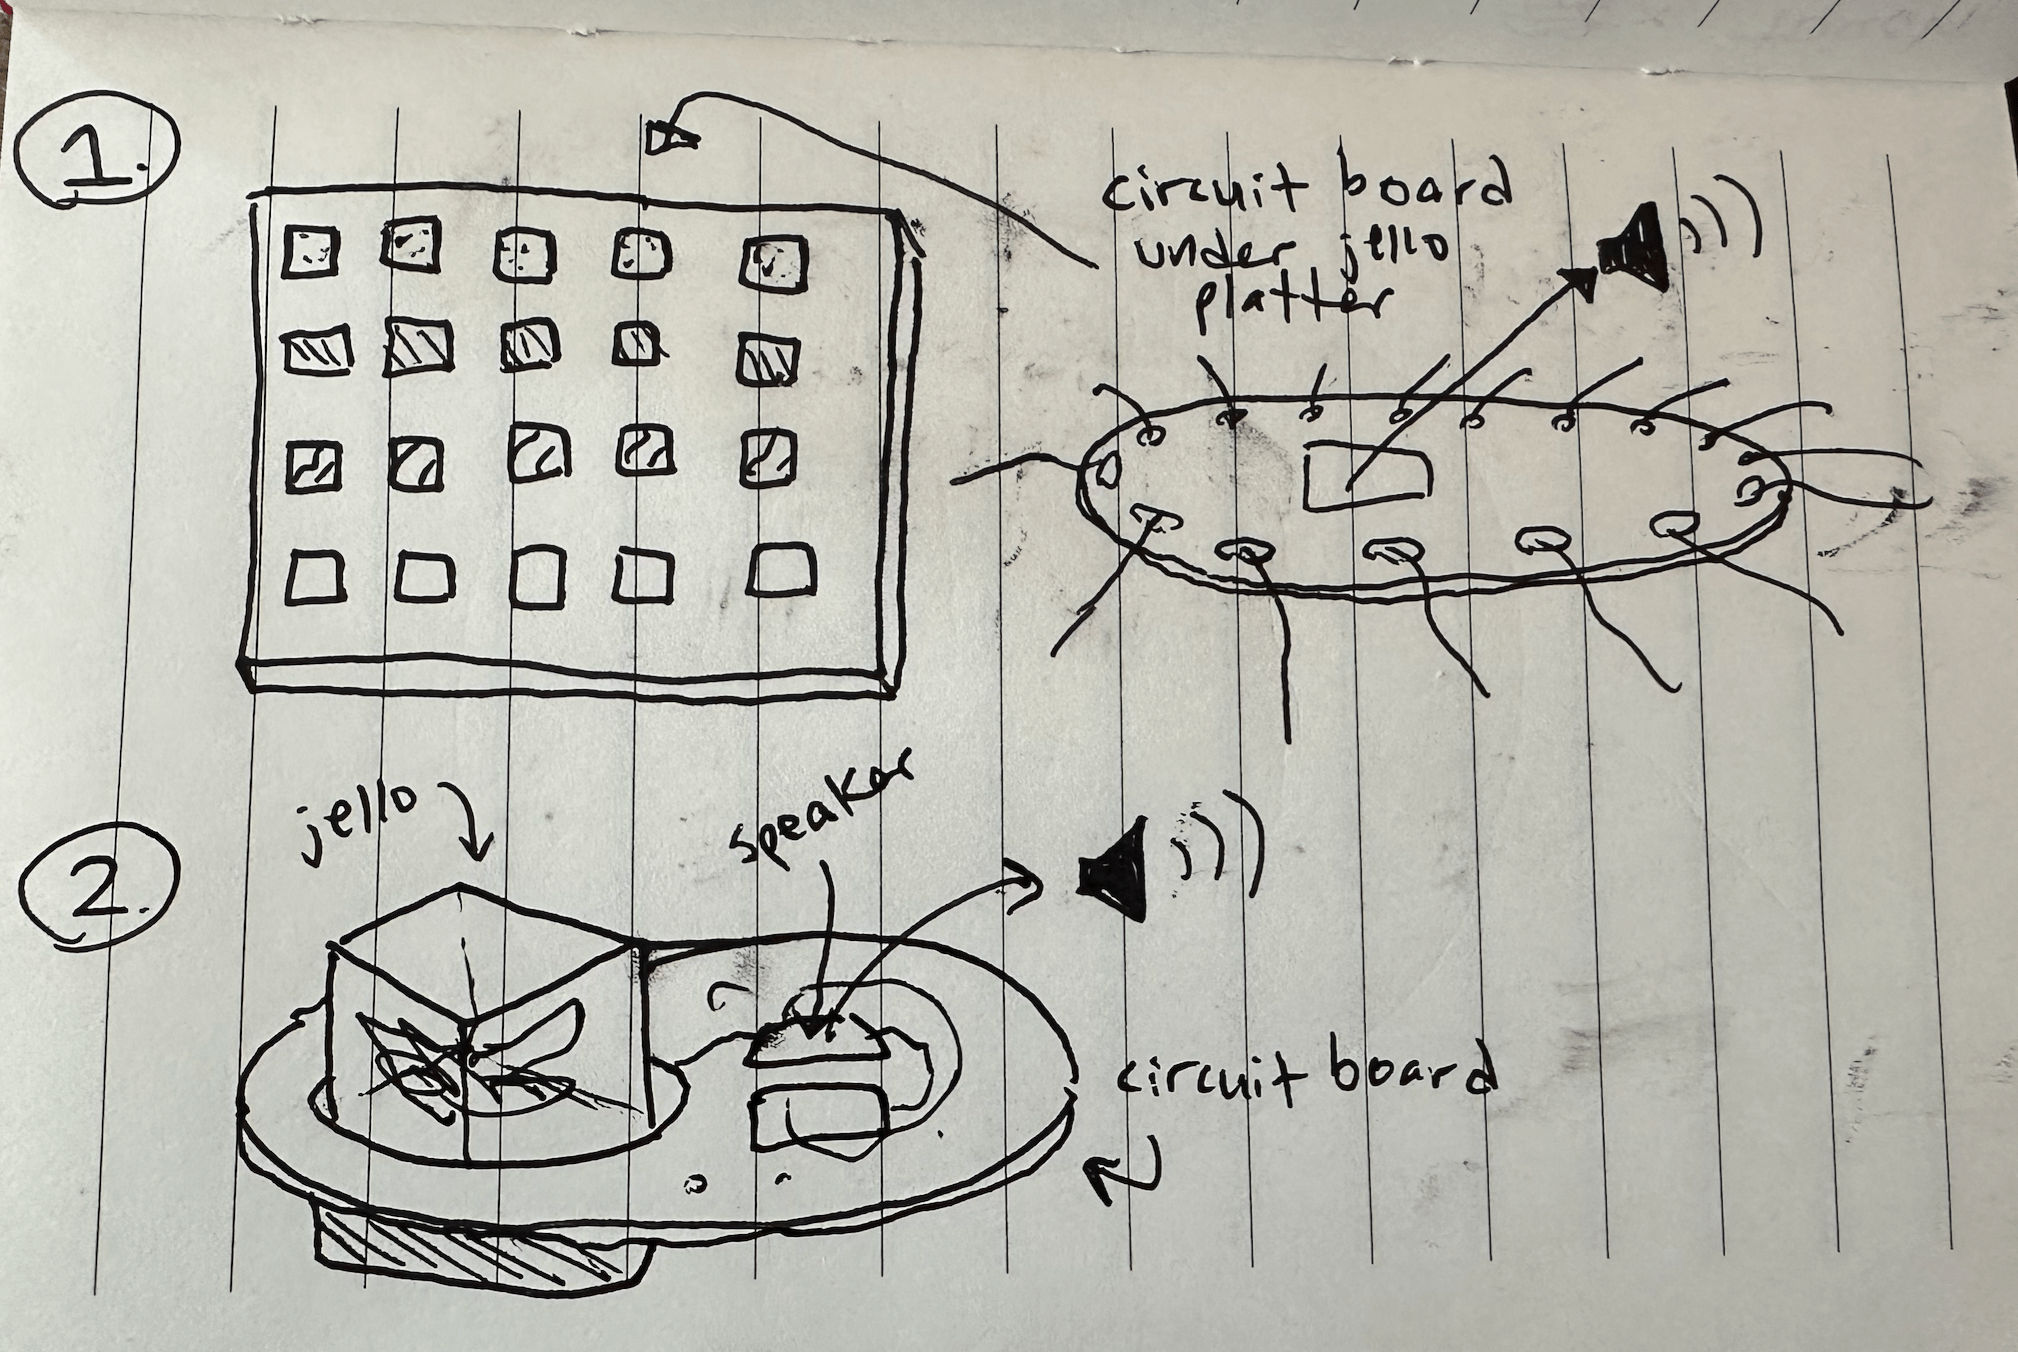 1.
circuit board
under jello
platter
2.
jello
speaker
circuit board